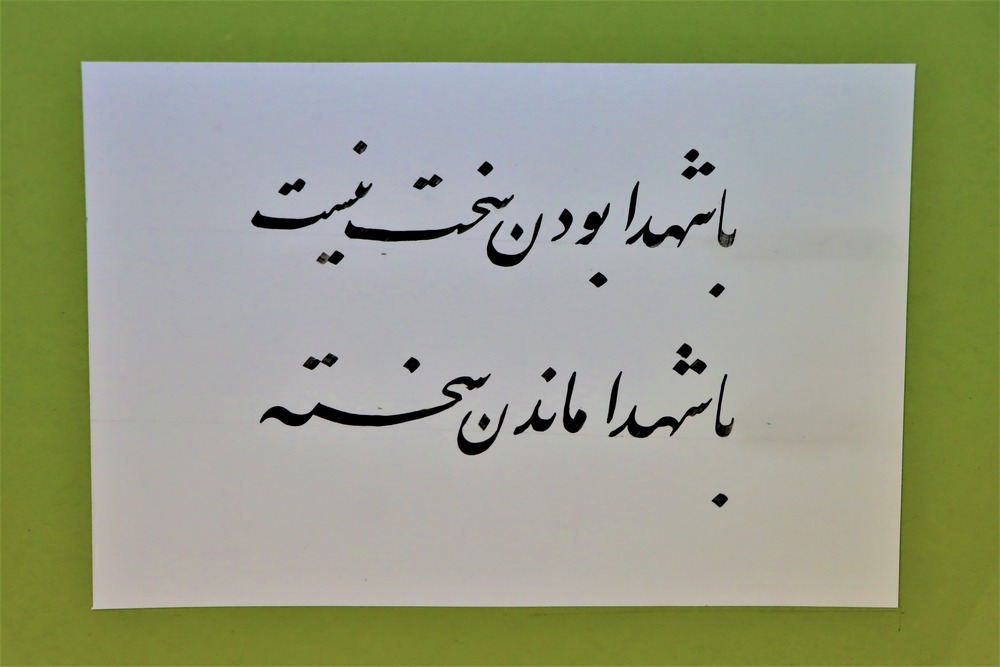 با شهدا بودن سخت نیست
با شهدا ماندن سخته